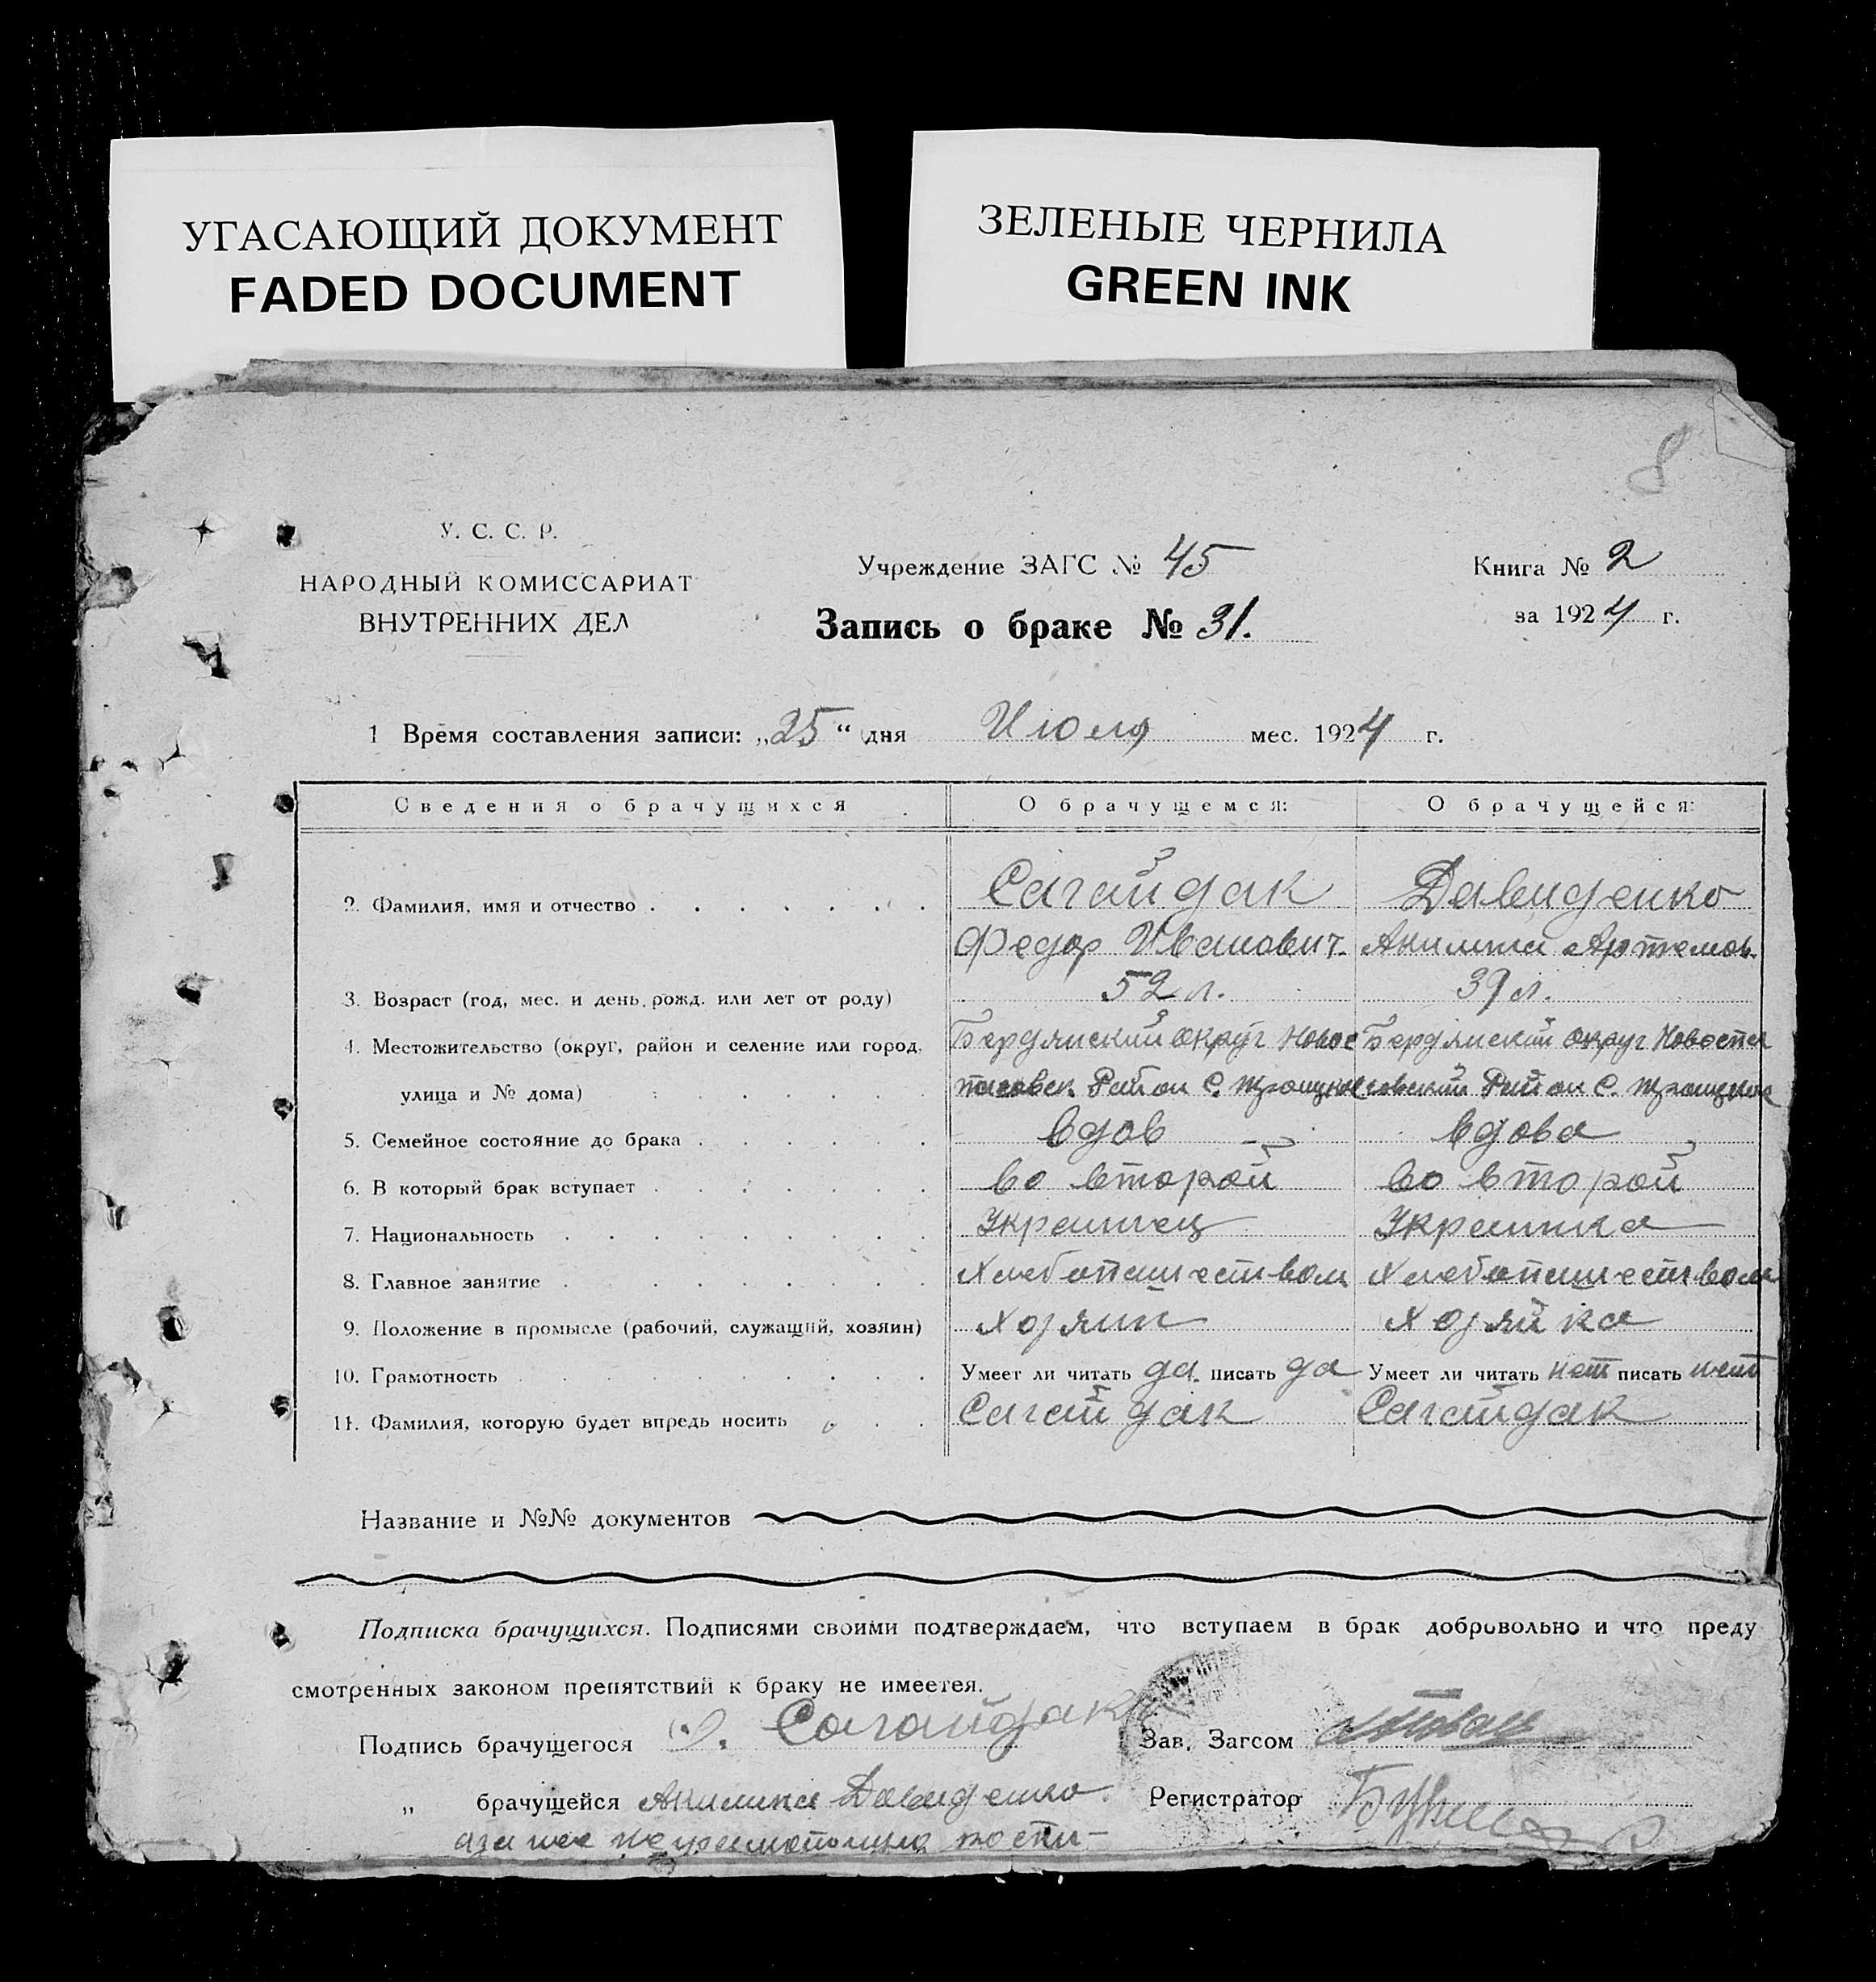 УГАСАЮЩИЙ ДОКУМЕНТ
FADED DOCUMENT
ЗЕЛЕНЫЕ ЧЕРНИЛА
GREEN INK
8
У. С. С. Р.
НАРОДНЫЙ КОМИССАРИАТ
ВНУТРЕННИХ ДЕЛ
Учреждение ЗАГС № 45
Запись о браке № 31.
Книга № 2
за 1924 г.
1 Время составления записи: „25“ дня Июля мес. 1924 г.
Сведения о брачущихся О брачущемся: О брачущейся:
2. Фамилия, имя и отчество Сагайдак Давиденко
Федор Иванович. Акилина Артемов.
3. Возраст (год, мес. и день рожд. или лет от роду) 52 л. 39 л.
4. Местожительство (округ, район и селение или город, Бердянский округ Новос Бердянский округ Новоспа
улица и № дома) пасовск. Район С. Троицкое совский Район С. Троицкое
5. Семейное состояние до брака вдов вдова
6. В который брак вступает во второй во второй
7. Национальность Украинец Украинка
8. Главное занятие Хлебопашеством Хлебопашеством
9. Положение в промысле (рабочий, служащий, хозяин) Хозяин Хозяйка
10. Грамотность Умеет ли читать да. писать да Умеет ли читать нет писать нет
11. Фамилия, которую будет впредь носить Сагайдак Сагайдак
Название и №№ документов
Подписка брачущихся. Подписями своими подтверждаем, что вступаем в брак добровольно и что преду
смотренных законом препятствий к браку не имеется.
Подпись брачущегося Сагайдак Зав. Загсом
„ брачущейся Акилина Давиденко. Регистратор
а за нее неграмотную